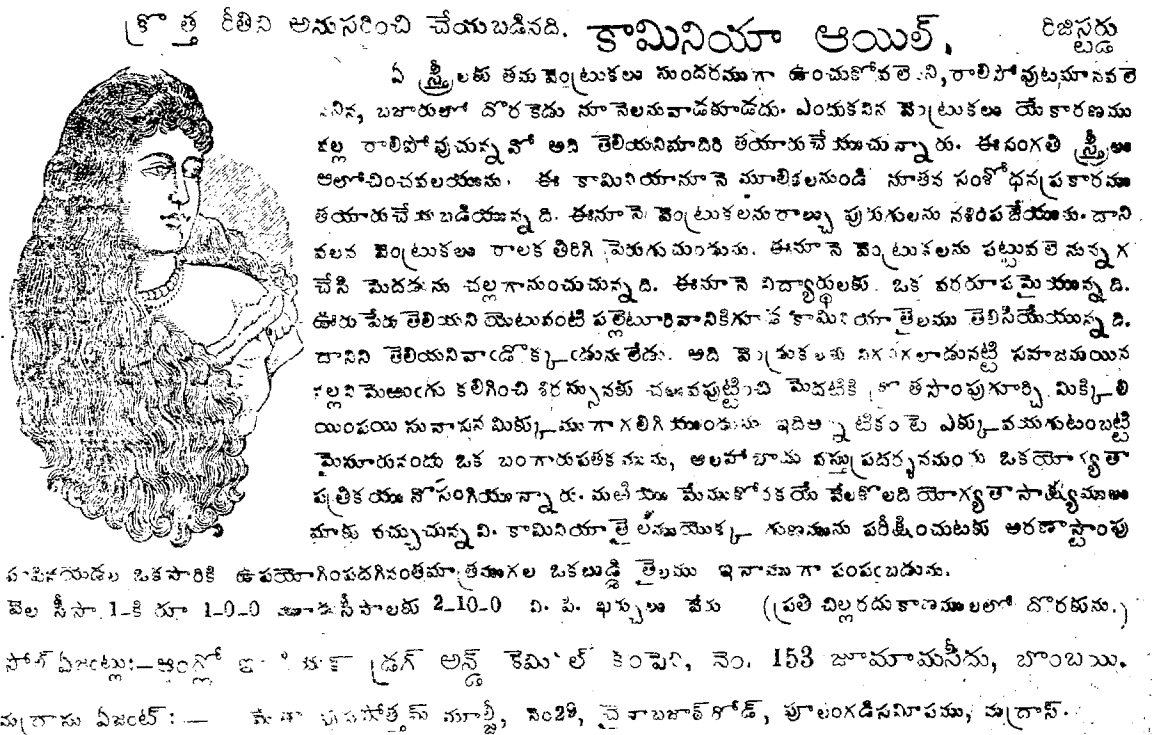 క్రొత్త రీతిని అనుసరించి చేయబడినది. కామినియా ఆయిల్. రిజిస్టర్డు
ఏ స్త్రీలకు తమ వెంట్రుకలు సుందరముగా ఉంచుకోవలెనని, రాలిపోవుటమానవలె
నన, బజారులో దొరకెడు నూనెలనువాడకూడదు. ఎందుకనిన వెంట్రుకలు యే కారణము
వల్ల రాలిపోవుచున్నవో అది తెలియనిమాదిరి తయారుచేయుచున్నారు. ఈసంగతి స్త్రీలు
ఆలోచించవలయును. ఈ కామినియానూనె మూలికలనుండి నూతన సంశోధనప్రకారము
తయారుచేయబడియున్నది. ఈనూనె వెంట్రుకలనురాల్చు పురుగులను నశింపజేయును. దాని
వలన వెంట్రుకలు రాలక తిరిగి పెరుగుచుండును. ఈనూనె వెంట్రుకలను పట్టువలెనున్నగ
చేసి మెదడును చల్లగానుంచుచున్నది. ఈనూనె విద్యార్థులకు ఒక వరరూపమైయున్నది.
ఊరు పేరు తెలియని యెటువంటి పల్లెటూరివానికిగూడ కామినియాతైలము తెలిసియేయున్నది.
దానిని తెలియనివాఁడొక్కఁడును లేడు. అది వెంట్రుకలకు నిగనిగలాడునట్టి సహజమయిన
నల్లని మెఱుఁగు కలిగించి శిరస్సునకు చలువపుట్టించి మెదటికి క్రొత్తసొంపుగూర్చి మిక్కిలి
యింపయి సువాసన మిక్కుముగా గలిగియుండును ఇది అన్నిటికంటె ఎక్కువయగుటంబట్టి
మైసూరునందు ఒక బంగారుపతకమును, అలహాబాదు వస్తుప్రదర్శనమందు ఒకయోగ్యతా
పత్రికయు నొసంగియున్నారు. మఱియు మేముకోరకయే వేలకొలది యోగ్యతాసాక్ష్యములు
మాకు వచ్చుచున్నవి. కామినియాతైలముయొక్క గుణమును పరీక్షించుటకు అరణాస్టాంపు
పంపినయెడల ఒకసారికి ఉపయోగింపదగినంతమాత్రముగల ఒకబుడ్డి తైలము ఇనాముగా పంపఁబడును.
వెల సీసా 1-కి రూ 1-0-0 మూడుసీసాలకు 2-10-0 వి. పి. ఖర్చులు వేరు (ప్రతి చిల్లరదుకాణములలో దొరకును.)
సోల్ ఏజంట్లు:—ఆంగ్లో డ్రగ్ అన్డ్ కెమికల్ కంపెని, నెం. 153 జూమామసీదు, బొంబయి.
మద్రాసు ఏజంట్ :— పురుషోత్తమ్ మూల్జీ, నెం29, చైనాబజార్‌రోడ్, పూలంగడిసమీపము, మద్రాస్.